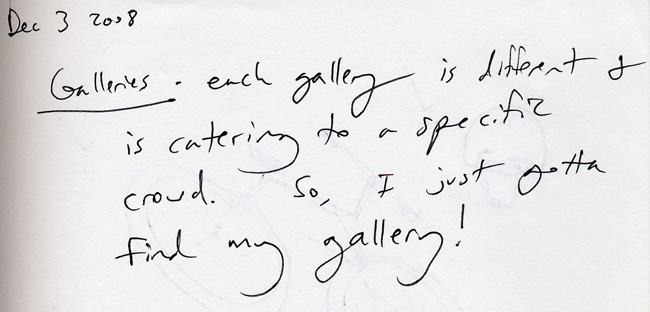 Dec 3 2008
Galleries. each gallery is different &
is catering to a specific
crowd. So, I just gotta
find my gallery!